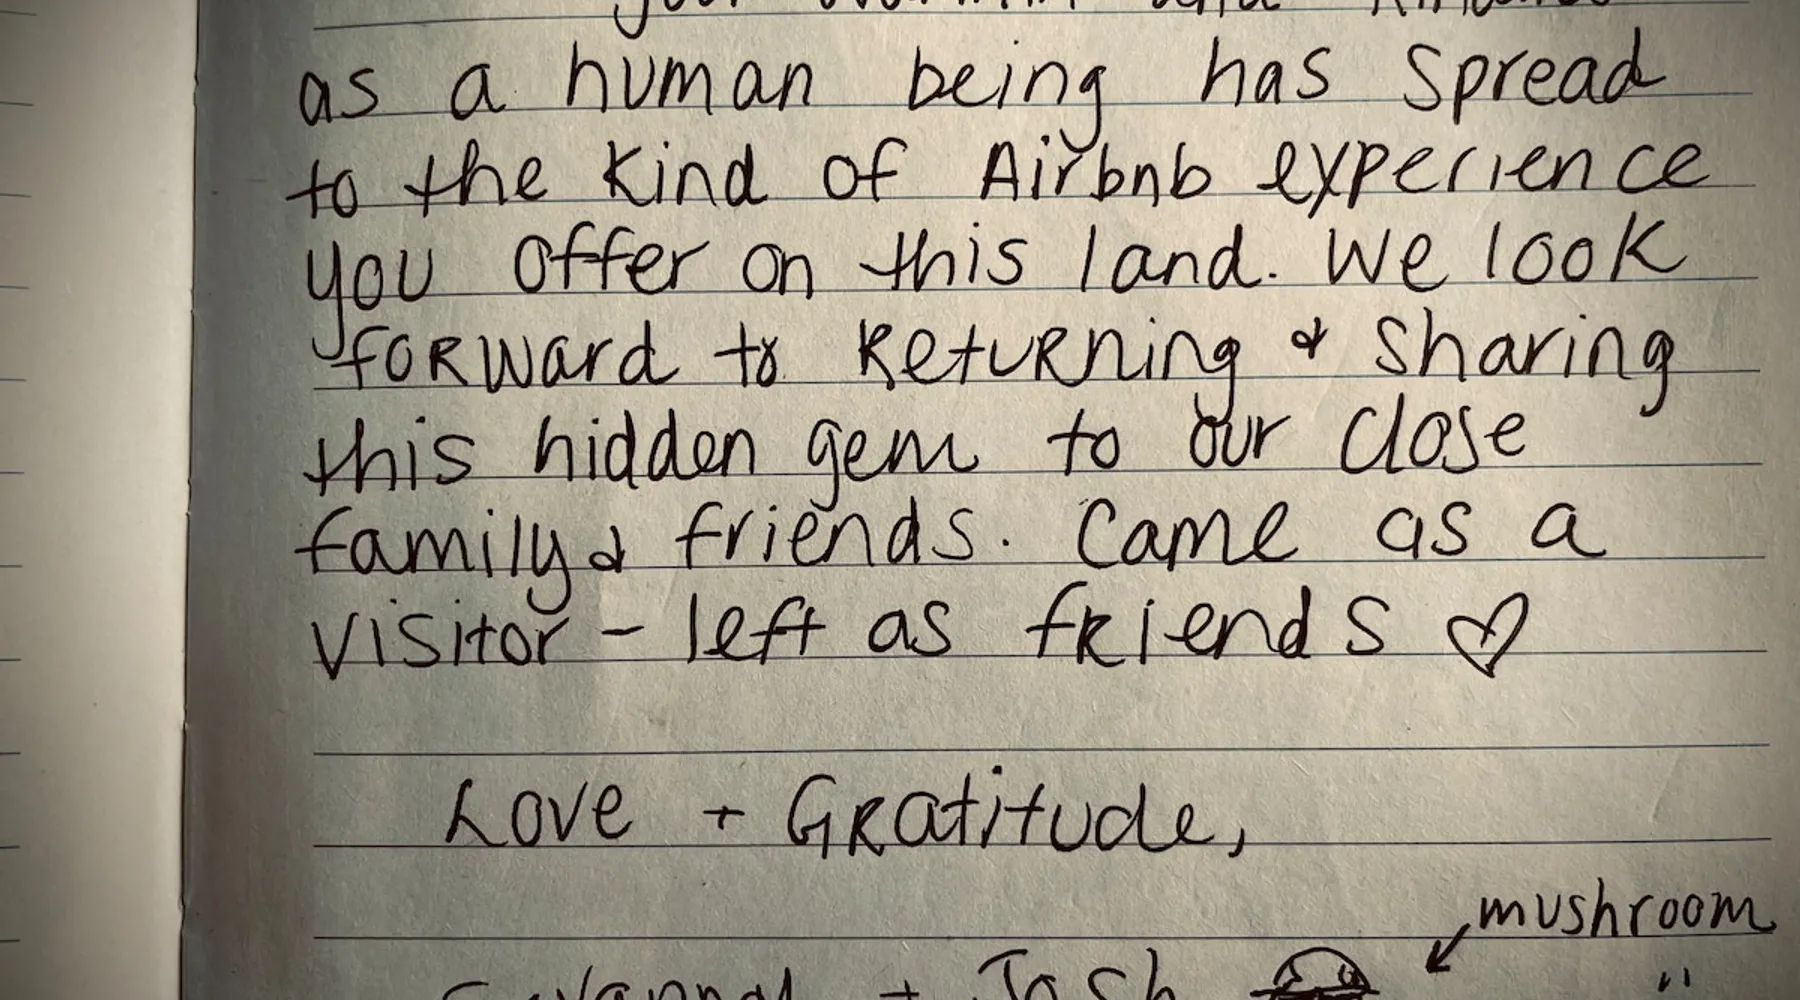 as a human being has spread
to the kind of Airbnb experience
you offer on this land. We look
forward to Returning & sharing
this hidden gem to our close
family & friends. Came as a
visitor - left as friends ♡
Love + Gratitude,
mushroom
+ Josh